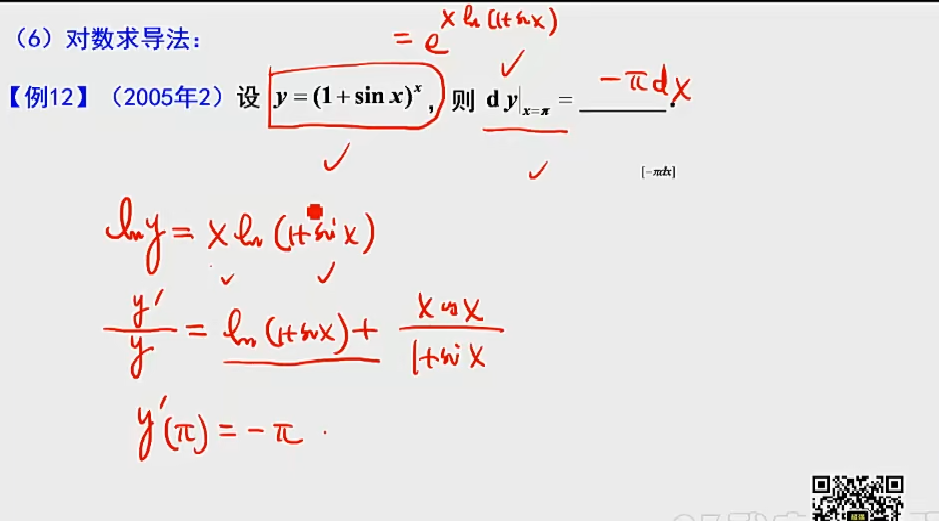 （6）对数求导法：
= e^{x ln(1+sinx)}
【例12】（2005年2）设 y = (1 + sin x)^x ，则 d y|_{x=π} = ________.
-πdx
[-πdx]
ln y = x ln (1+sin x)
y'/y = ln (1+sinx) + x cos x / 1+sin x
y'(π) = -π